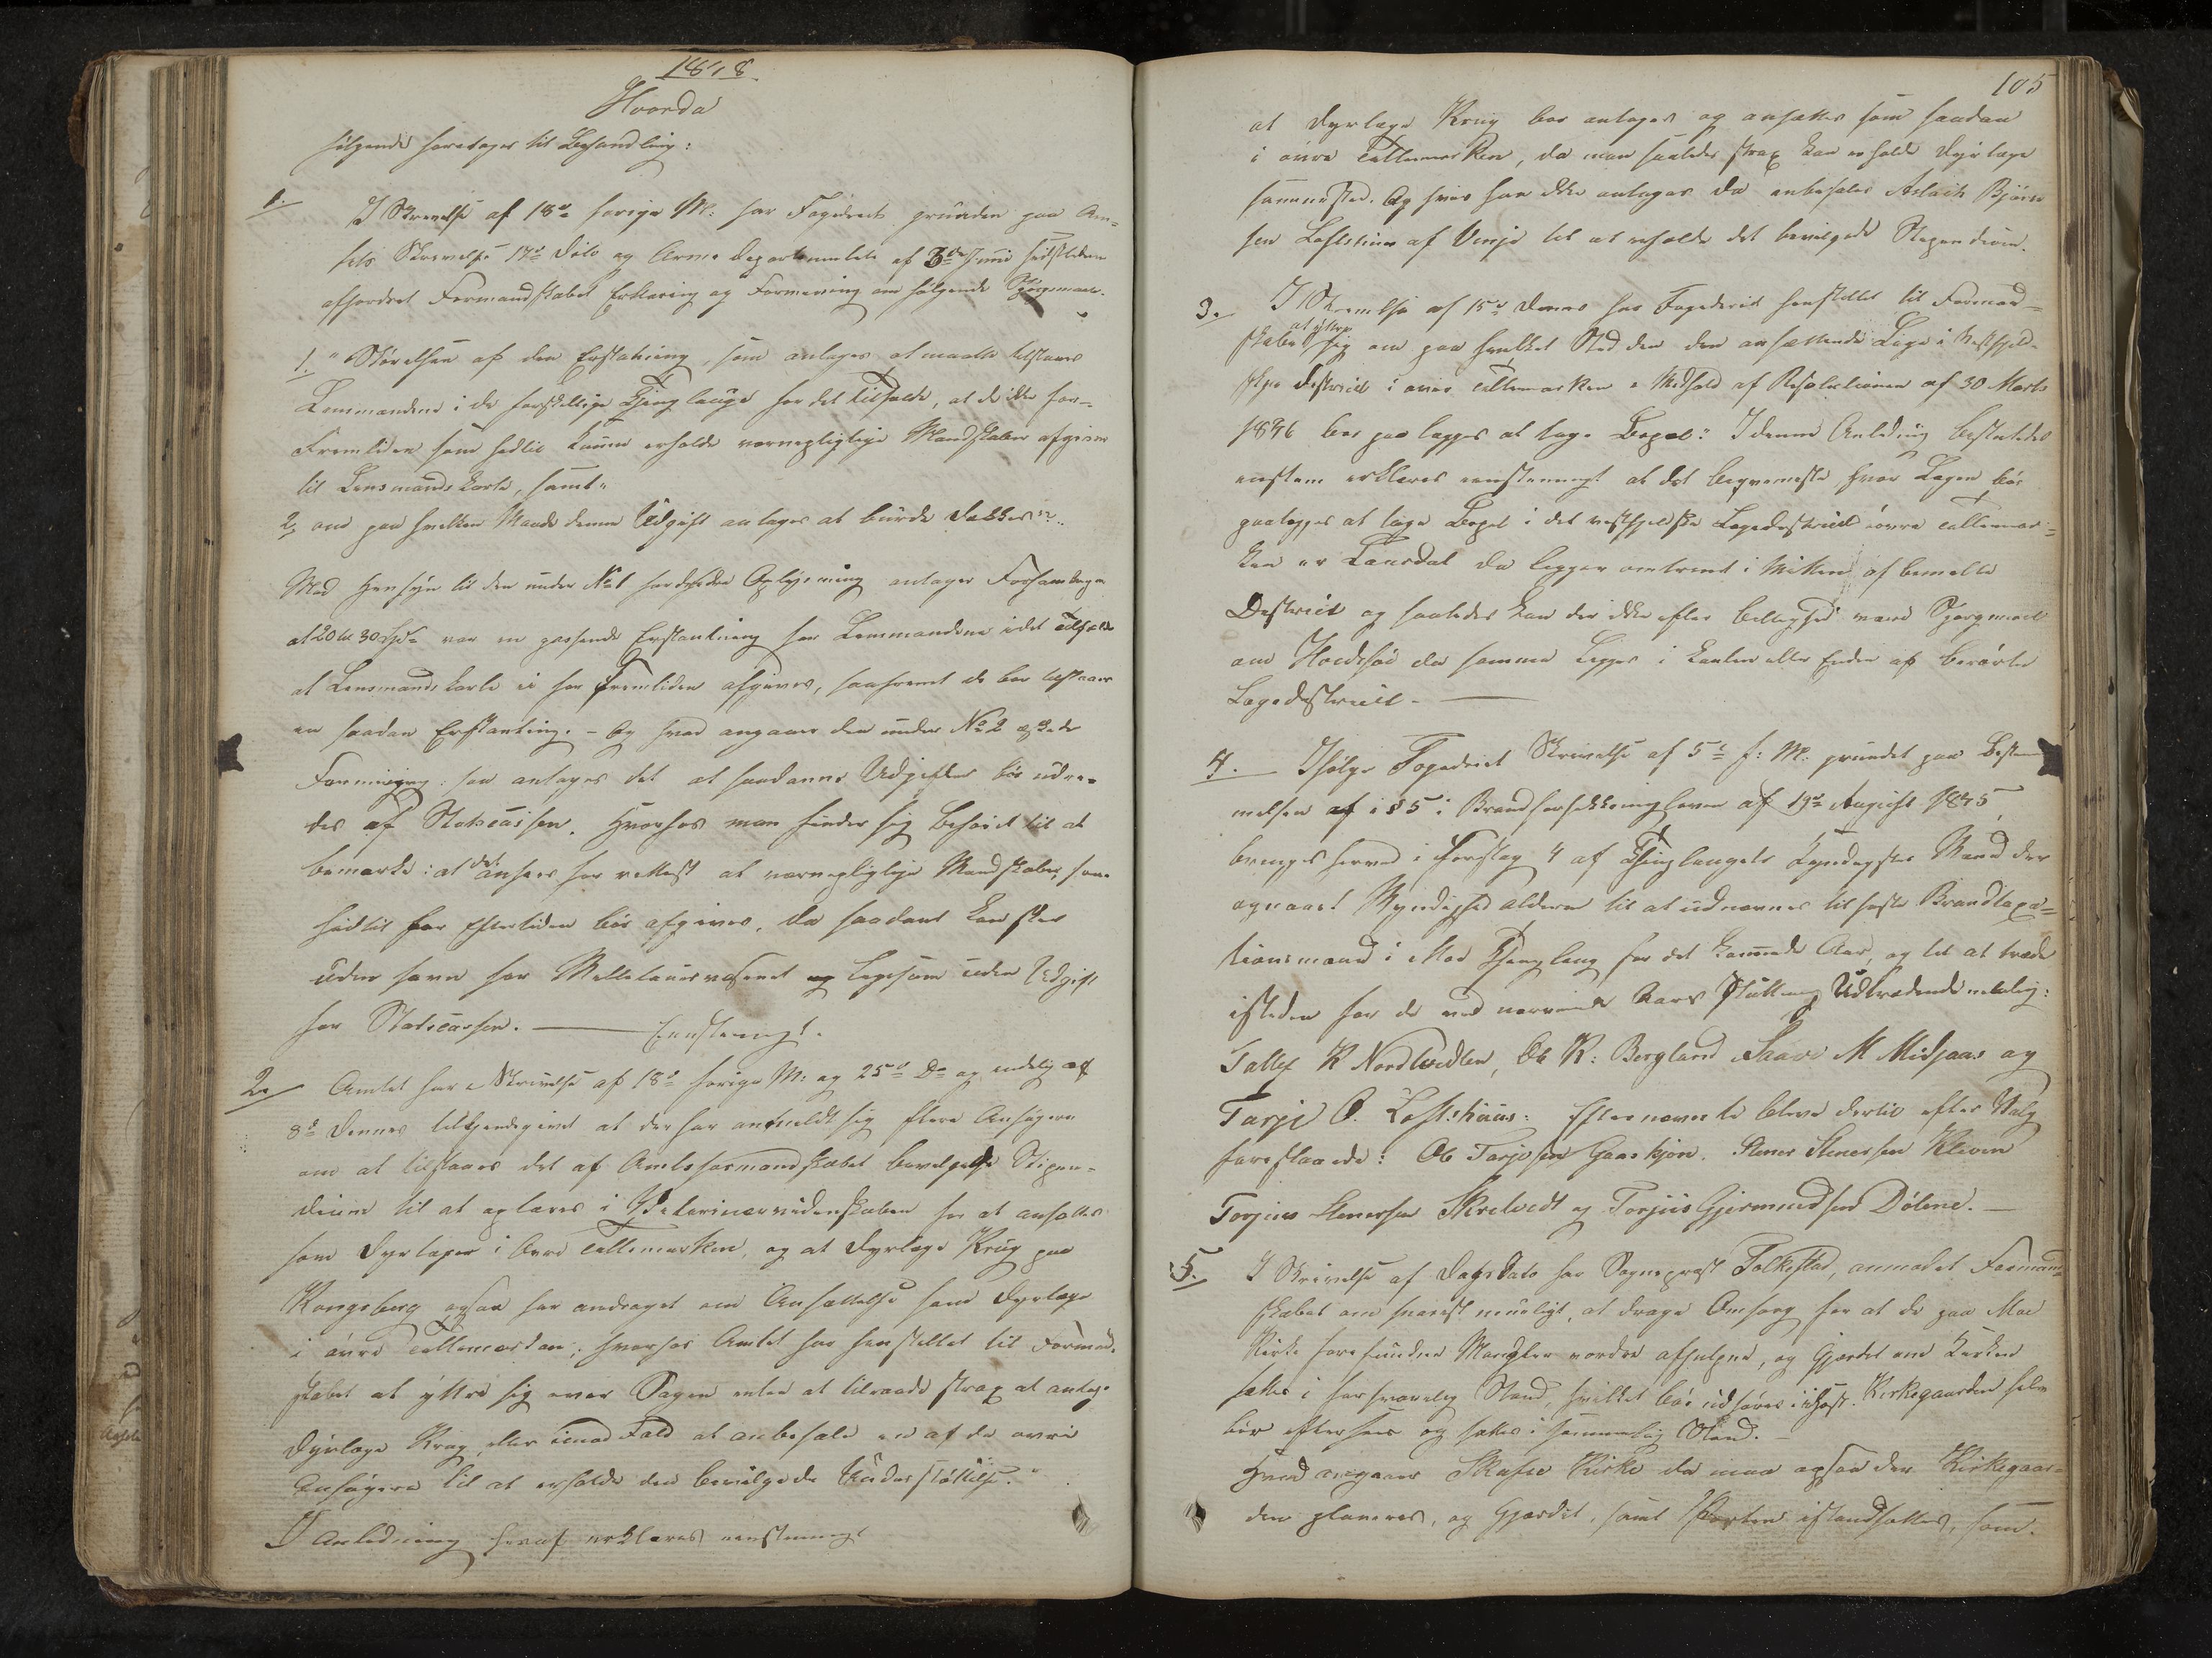 1848
Hvorda
følgende foretages til Behandling:
1. I Skrivelse af 18de forige M: har Fogderiet grunden paa Am-
tets Skrivelse 17de Dito og Arme Departemtets af 3die Juni sidstleden
affordret Formandskabet Erklæring og Formening om følgende Spørgsmaal.
1. "Størelsen af den Erstatning, som antages at maatte tilstaaes
Lensmændene i de forskjellige Thinglauge for det Tilfælde, at de ikke for-
Fremtiden som hedtil kunne erholde vernepligtige Mandskaber afgivne
til Lensmands Karle, samt"
2, om paa hvilken Maade denne Udgift antages at burde dækkes".
Med Hensyn til den under No 1 fordrede Oplysning antager Forsamlingen
at 20 til 30 Spd var en passende Erstatning for Lensmændene i det Tilfælde
at Lensmands karle ei for Fremtiden afgives, saafremt de bør tilstaaes
en saadan Erstatning. - Og hvad angaaer den under No 2 æskede
Formening: saa antages det at saadanne Udgifter bør udre-
des af Statscassen. Hvorhos man finder sig beføiet til at
bemærke: at det ansees for rettest at vernepligtige Mandskaber, som
hidtil for Eftertiden bør afgives, da saadant kan skee
uden savn for Militairvæsenet og ligesom uden Udgift
for Statscassen. — Eenstemmigt.
2. Amtet har i Skrivelse af 18de forige M: og 25de Do og endelig af
8de dennes tilkjendegivet at der har anmeldt sig flere Ansøgere
om at tilstaaes det af Amtsformandskabet bevilgede Stipen-
dium til at oplæres i Veterinærvidenskaben for at ansættes
som Dyrlæger i Øvre Tellemarken, og at Dyrlæge Krüg paa
Kongsberg ogsaa har andraget om Ansættelse som Dyrlæge
i øvre Tellemarken; hvorhos Amtet har henstillet til Formand-
skabet at yttre sig over Sagen enten at tilraade strax at antage
Dyrlæge Krug eller i mod Fald at anbefale en af de øvre
Ansøgere til at erholde den bevilgede Understøttelse."
I Anledning heraf erklæres eenstemmigt
105
at Dyrlæge Krüg bør antages og ansættes som saadan
i øvre Tellemarken, da man saaledes strax kan erholde Dyrlæge
sammested. Og hvis han ikke antages da anbefales Aslack Bjørn
sen Loftshuus af Vinje til at erholde det bevilgede Stipendium.
3. I Skrivelse af 15de dennes har Fogderiet henstillet til Formand-
skabet at yttre sig om paa hvilket Sted den den ansættende Læge i Vestfjeld-
ske District i øvre Tellemarken i Medhold af Resolutionen af 30 Marts
1846 bør paalægges at tage Bopæl: I denne Anledning besluttedes
erklæres eenstemmigt at det beqvemeste hvor Lægen bør
paalægges at tage Bopæl i det vestfjeldske Lægedistrict i øvre Tellemar-
ken er Laurdal da ligger omtrent i Midten af bemeldte
District og saaledes kan der ikke efter billighed være Spørgsmaal
om Hvideseid da samme ligger i Kanten eller Enden af berørte
Lægedistrict. —
4. Ifølge Fogderiets Skrivelse af 5te f: M. grundet paa Bestem
melsen af i § 5 i Brandforsikkringsloven af 19de August 1845,
bringes herved i Forslag 4 af Thinglaugets kyndigste Mænd der
opnaaet Myndighed alderen til at udnævnes til faste Brandtaxa-
tionsmænd i Moe Thinglaug for det kommende Aar, og til at træde
isteden for de ved nærværende Aars Slutning Udtrædende nemlig:
Tallef K Nordtvedten, Ole K: Bergland Saave M Midjaas og
Tarje O. Loftshuus: Efternævnte bleve dertil efter Valg
foreslaaede: Ole Tarjesen Gaaskjøn. Stener Stenersen Kleven
Torjuus Stenersen Skredvedt og Torjuus Gjermundsen Dølene. —
5. I Skrivelse af Dags Dato har Sognepræst Folkestad, anmodet Formand-
skabet om snarest mueligt, at drage Omsorg for at de paa Moe
Kirke forefundne Mangler vorder afhulpne, og Gjerdet om Kirken
sættes i forsvarlig Stand, hvilket bør udføres i Høst. Kirkegaarden selv
bør eftersees og sættes i sømmelig Stand. —
Hvad angaaer Skafse Kirke da maa ogsaa der Kirkegaar-
den planeres, og Gjerdet, samt Porten istandsættes, som.